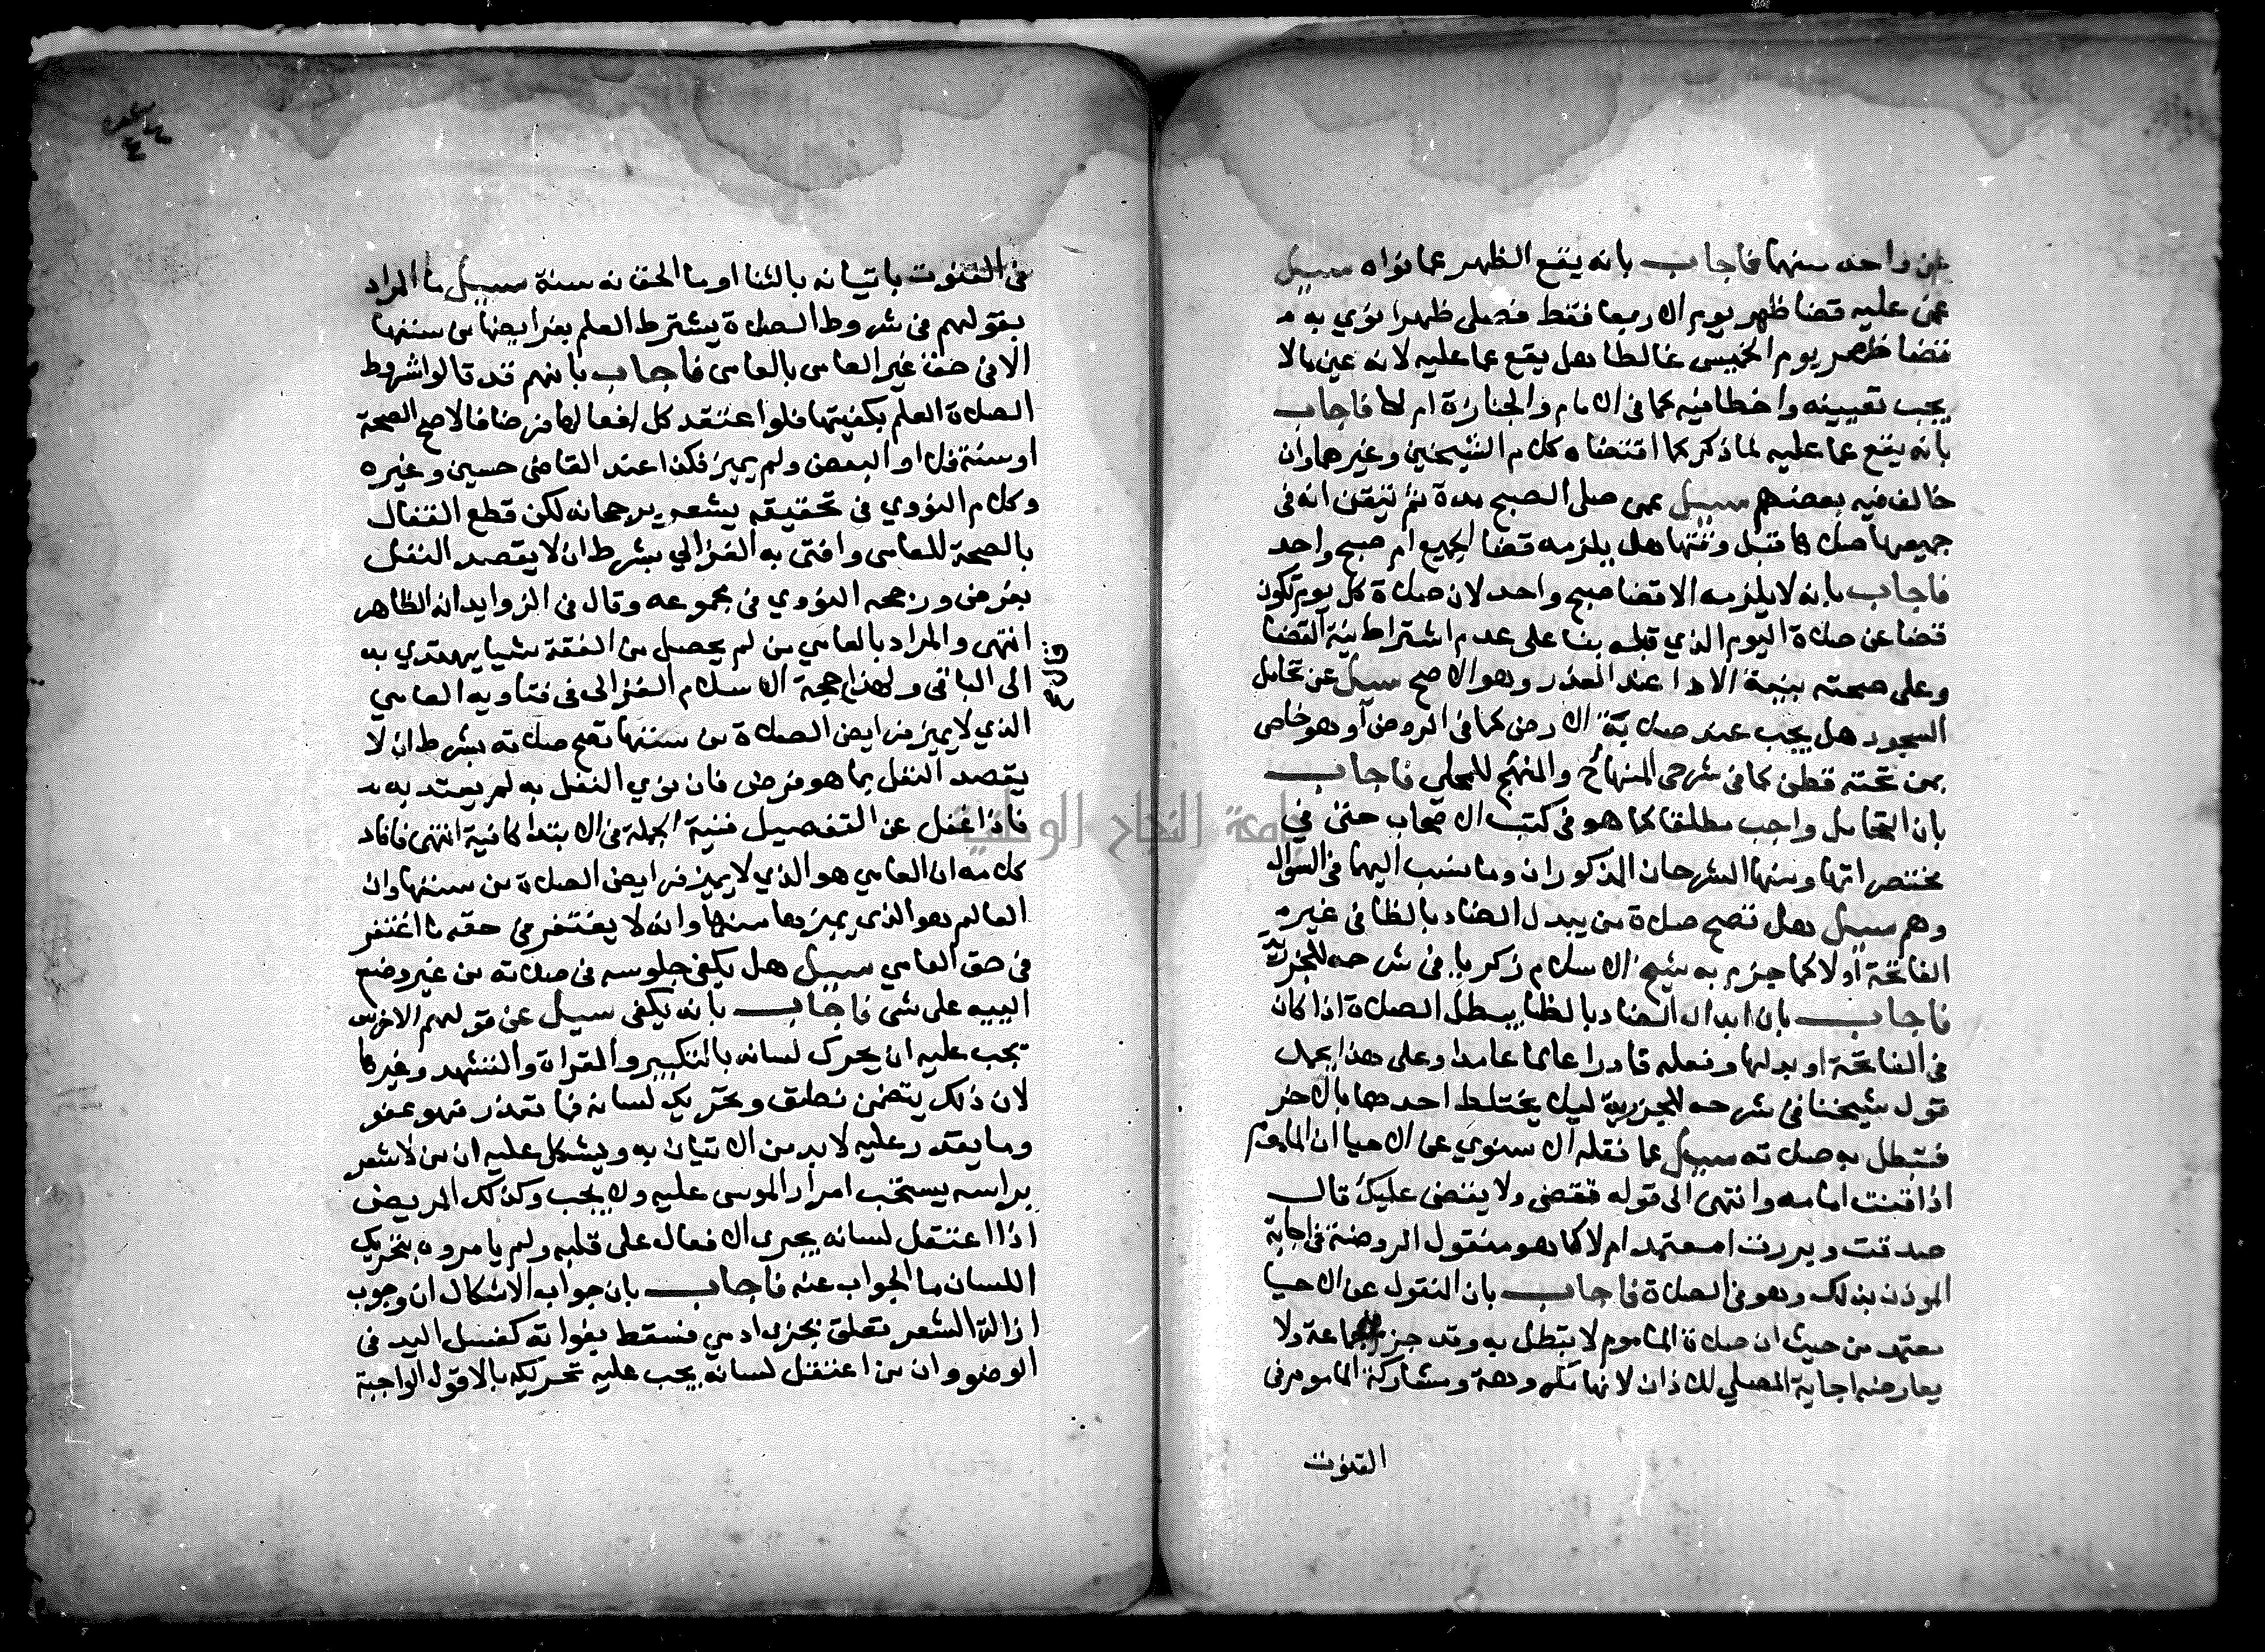 عن واحده منها فاجاب بانه يقع الظهر عما نواه سييل
عمن عليه قضا ظهر يوم الاربعا فقط فصلى ظهرا نوي به
قضا ظهر يوم الخميس غالطا هل يقع عما عليه لانه عين مالا
يجب تعيينه واخطا فيه كما في الامام والجنازة ام لا فاجاب
بانه يقع عما عليه لما ذكر كما اقتضاه كلام الشيخين وغيرهما وان
خالف فيه بعضهم سييل عمن صلى الصبح مدة ثم تيقن انه في
جميعها صلاها قبل وقتها هل يلزمه قضا الجميع ام صبح واحد
فاجاب بانه لا يلزمه الا قضا صبح واحد لان صلاة كل يوم تكون
قضا عن صلاة اليوم الذي قبله بنا على عدم اشتراط نية القضا
وعلى صحته بنية الادا عند العذر وهو الاصح سييل عن تحامل
السجود هل يجب عند صلابة الارض كما في الروض او هو خاص
بمن تحته قطن كما في شرحي المنهاج والمنهج للمحلي فاجاب
بان التحامل واجب مطلقا كما هو في كتب الاصحاب حتى في
مختصراتها ومنها الشرحان المذكوران وما نسب اليهما في السوال
وهم سييل هل تصح صلاة من يبدل الضاد بالظا في غير
الفاتحة او لا كما جزم به شيخ الاسلام زكريا في شرحه للجزرية
فاجاب بان ابدال الضاد بالظا يبطل الصلاة اذا كان
في الفاتحة او بدلها وفعله قادرا عالما عامدا وعلى هذا يحمل
قول شيخنا في شرحه للجزرية ليلا يختلط احدهما بالاخر
فتبطل به صلاته سييل عما نقله الاسنوي عن الاحيا ان الماموم
اذا قنت امامه وانتهى الى قوله تقضي ولا يقضى عليك قال
صدقت وبررت امعتمد ام لا كما هو منقول الروضة في اجابة
الموذن بذلك وهو في الصلاة فاجاب بان المنقول عن الاحيا
معتمد من حيث ان صلاة الماموم لا تبطل به وقد جزم جماعة ولا
يعارضه اجابة المصلي للاذان لانها مكروهة ومشاركة الماموم في
القنوت
في القنوت باتيانه بالثنا او ما الحق به سنة سييل ما المراد
بقولهم في شروط الصلاة يشترط العلم بفرايضها من سننها
الا في حق غير العامي بالعامي فاجاب بانهم قد قالوا شروط
الصلاة العلم بكفيتها فلو اعتقد كل افعالها فرضا فالاصح الصحة
او سنة فلا او البعض ولم يميز فكذا عند القاضي حسين وغيره
وكلام النووي في تحقيقه يشعر برجحانه لكن قطع القفال
بالصحة للعامي وافتى به الغزالي بشرط ان لا يقصد النفل
بفرض ورجحه النووي في مجموعه وقال في الزوايد انه الظاهر
انتهى والمراد بالعامي من لم يحصل من الفقه شيا يهتدي به
الى الباقي ولهذا حجة الاسلام الغزالي في فتاويه العامي
الذي لا يميز فرايض الصلاة من سننها تصح صلاته بشرط ان لا
يقصد النفل بما هو فرض فان نوي النفل به لم يعتد به
فاذا غفل عن التفصيل فنية الجملة في الابتدا كافية انتهى فافاد
كلامه ان العامي هو الذي لا يميز فرايض الصلاة من سننها وان
العالم هو الذي يميزها منها وانه لا يغتفر في حقه ما اغتفر
في حق العامي سييل هل يكفي جلوسه في صلاته من غير وضع
اليديه على شي فاجاب بانه يكفي سييل عن قولهم الاخرس
يجب عليه ان يحرك لسانه بالتكبير والقراة والتشهد وغيرها
لان ذلك يتضمن نطق وتحريك لسانه فما تعذر فهو عفو
وما يقدر عليه لا بد من الاتيان به ويشكل عليه ان من لا شعر
براسه يستحب امرار الموسى عليه ولا يجب وكذلك المريض
اذا اعتقل لسانه يجرى الافعال على قلبه ولم يامروه بتحريك
اللسان ما الجواب عنه فاجاب بان جواب الاشكال ان وجوب
ازالة الشعر تعلق بجزء ادمي فسقط بفواته كغسل اليد في
الوضوء وان من اعتقل لسانه يجب عليه تحريكه بالاقوال الواجبة
جامعة النجاح الوطنية